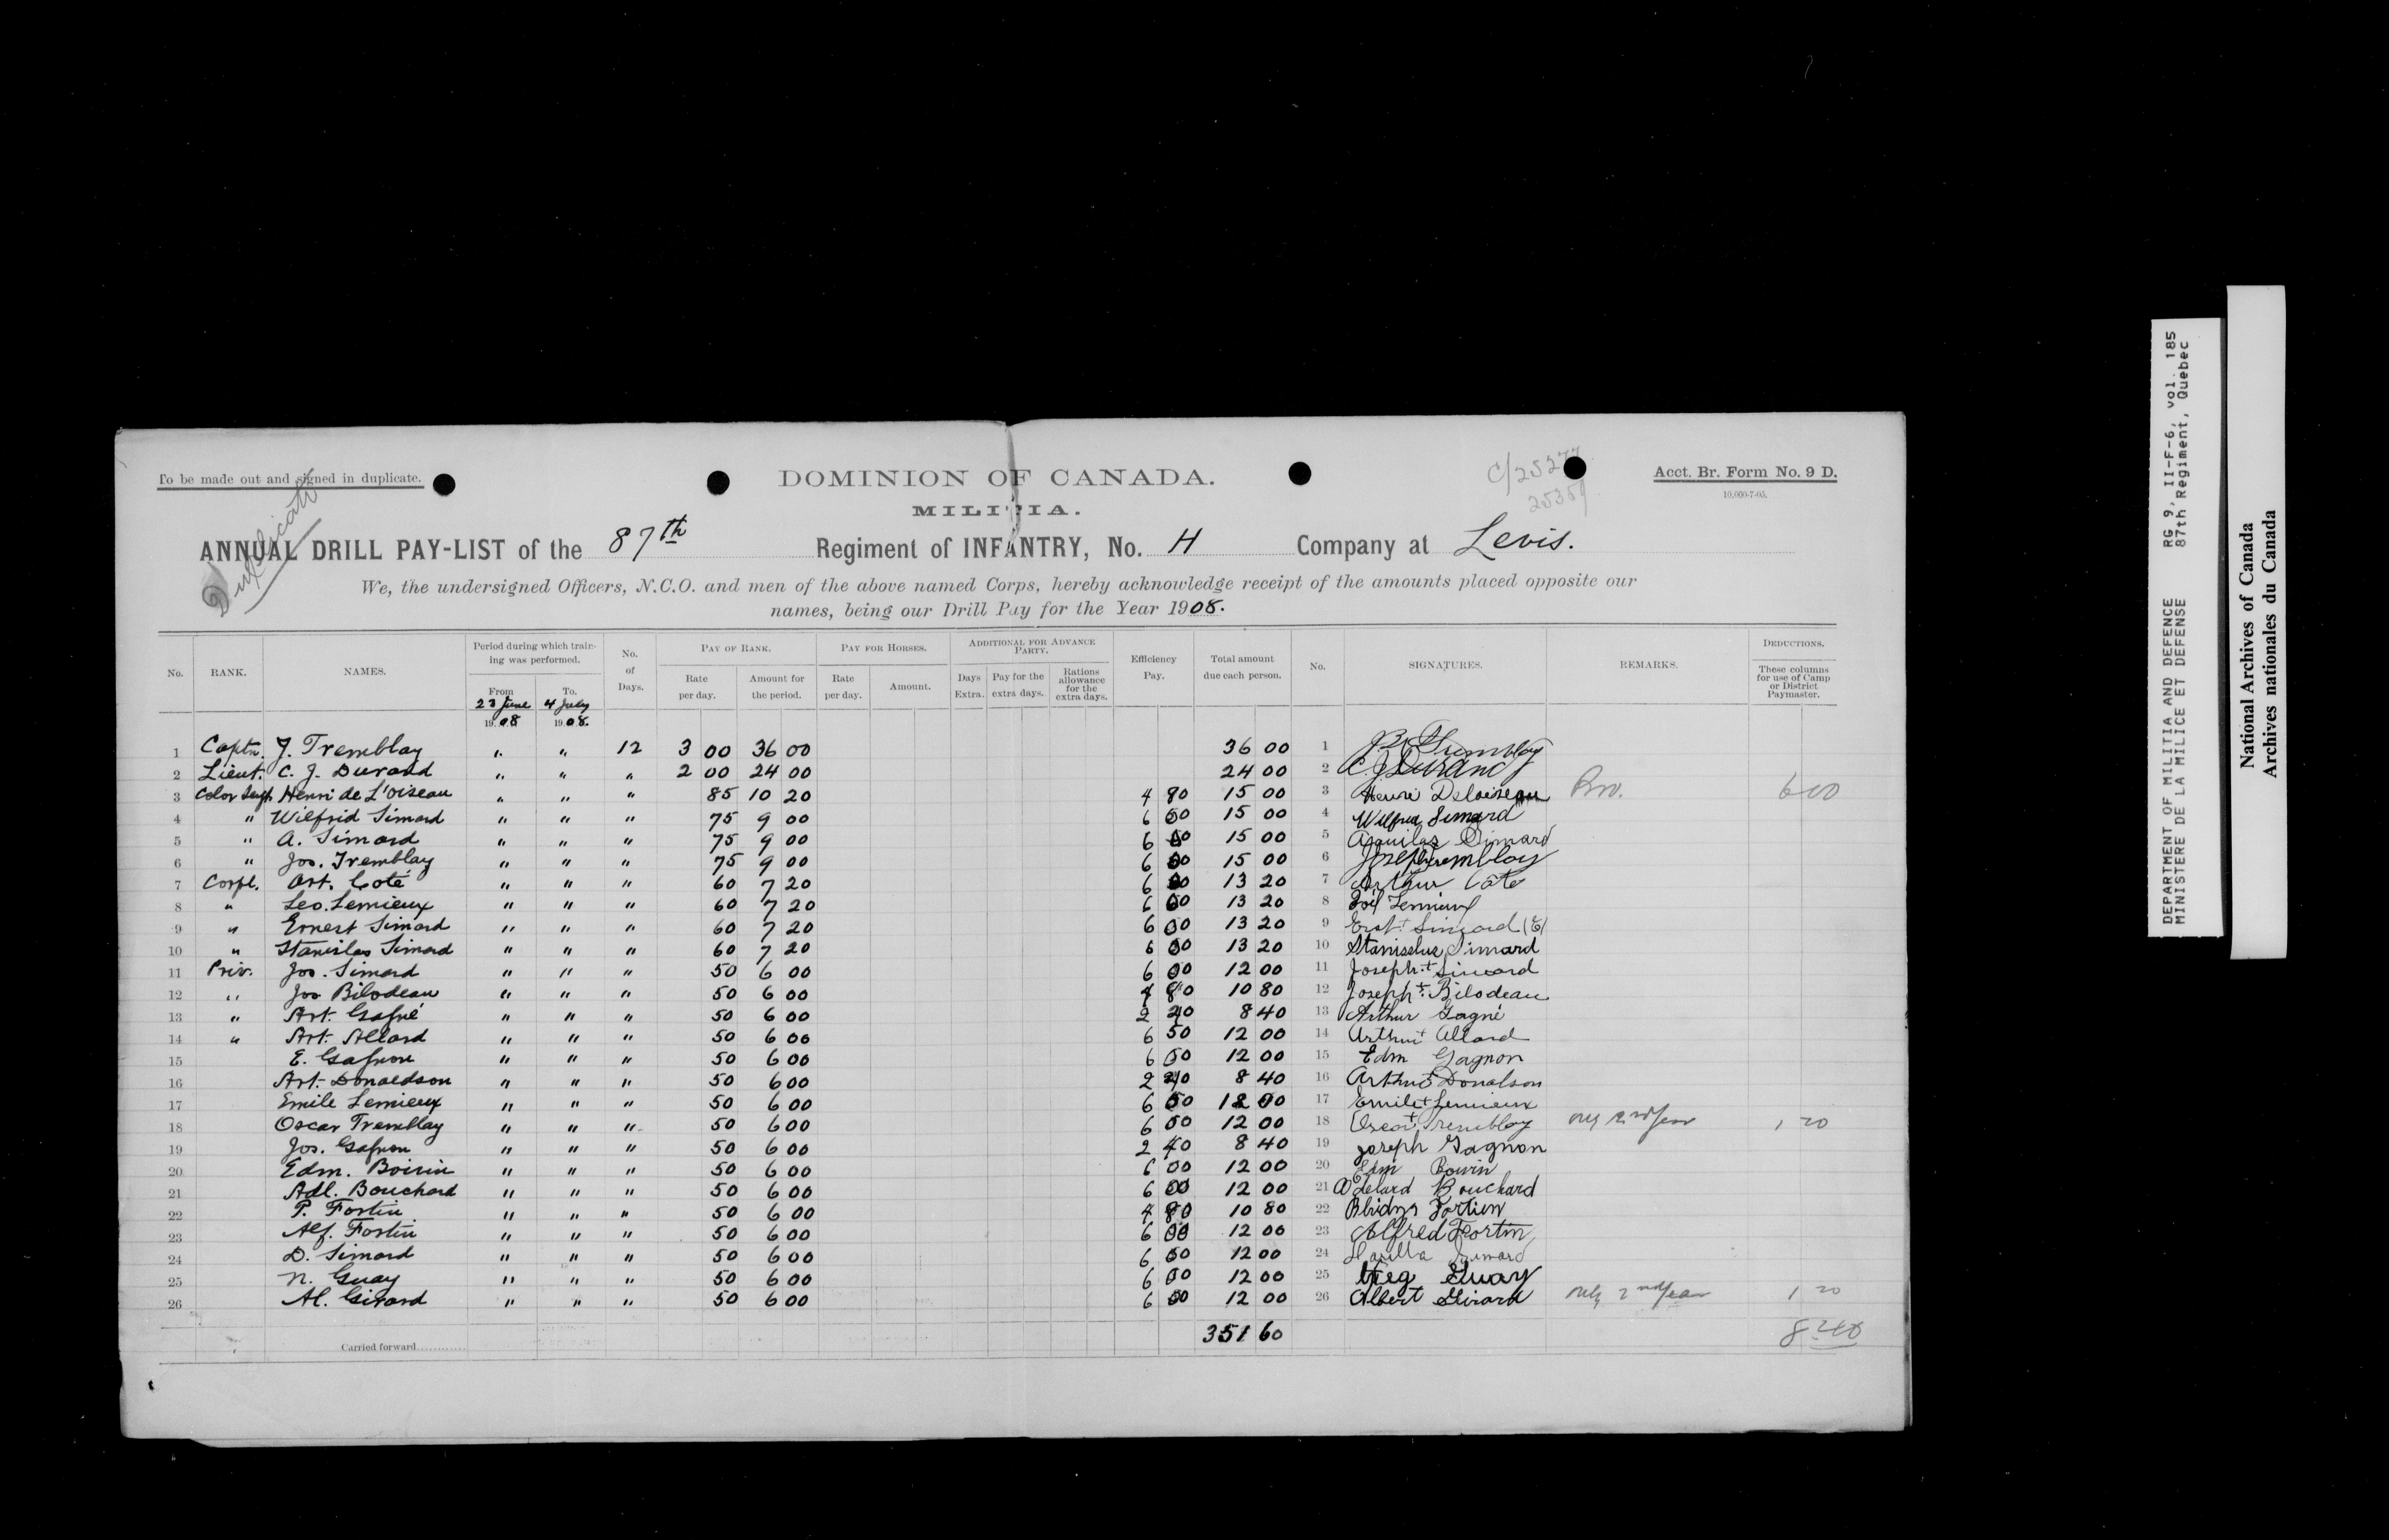 To be made out and signed in duplicate.
Duplicate
DOMINION OF CANADA.
MILITIA.
C/25277
25351
Acct. Br. Form No. 9 D.
10,000-7-05.
ANNUAL DRILL PAY-LIST of the 87th Regiment of INFANTRY, No. H Company at Levis.
We, the undersigned Officers, N.C.O. and men of the above named Corps, hereby acknowledge receipt of the amounts placed opposite our
names, being our Drill Pay for the Year 1908.
No. RANK. NAMES. Period during which training was performed. From 23 June 1908 To. 4 July 1908. No. of Days. PAY OF RANK. Rate per day. Amount for the period. PAY FOR HORSES. Rate per day. Amount. ADDITIONAL FOR ADVANCE PARTY. Days Extra. Pay for the extra days. Rations allowance for the extra days. Efficiency Pay. Total amount due each person. No. SIGNATURES. REMARKS. DEDUCTIONS. These columns for use of Camp or District Paymaster.
1 Captn. J. Tremblay " " 12 3 00 36 00 36 00 1 Tremblay
2 Lieut. C. J. Durand " " " 2 00 24 00 24 00 2 C. J. Durand
3 Color Sergt. Henri de L'Oiseau " " " 85 10 20 4 80 15 00 3 Henri Deloiseau Prov. 6 00
4 " Wilfrid Simard " " " 75 9 00 6 00 15 00 4 Wilfrid Simard
5 " A. Simard " " " 75 9 00 6 00 15 00 5 Aquilas Simard
6 " Jos. Tremblay " " " 75 9 00 6 00 15 00 6 Joseph Tremblay
7 Corpl. Art. Coté " " " 60 7 20 6 00 13 20 7 Arthur Cote
8 " Leo. Lemieux " " " 60 7 20 6 00 13 20 8 Lemieux
9 " Ernest Simard " " " 60 7 20 6 00 13 20 9 Ernst + Simard (E)
10 " Stanislas Simard " " " 60 7 20 6 00 13 20 10 Stanislus Simard
11 Priv. Jos. Simard " " " 50 6 00 6 00 12 00 11 Joseph + Simard
12 " Jos Bilodeau " " " 50 6 00 4 80 10 80 12 Joseph + Bilodeau
13 " Art. Gagné " " " 50 6 00 2 40 8 40 13 Arthur Gagné
14 " Art. Allard " " " 50 6 00 6 00 12 00 14 Arthur + Allard
15 E. Gagnon " " " 50 6 00 6 00 12 00 15 Edm Gagnon
16 Art. Donaldson " " " 50 6 00 2 40 8 40 16 Arthur + Donalson
17 Emile Lemieux " " " 50 6 00 6 00 12 00 17 Emile + Lemieux
18 Oscar Tremblay " " " 50 6 00 6 00 12 00 18 Oscar + Tremblay only 2nd year 1 20
19 Jos. Gagnon " " " 50 6 00 2 40 8 40 19 Joseph Gagnon
20 Edm. Boivin " " " 50 6 00 6 00 12 00 20 Edm Boivin
21 Adl. Bouchard " " " 50 6 00 6 00 12 00 21 Adelard Bouchard
22 P. Fortin " " " 50 6 00 4 80 10 80 22 Fortien
23 Alf. Fortin " " " 50 6 00 6 00 12 00 23 Alfred Fortin
24 D. Simard " " " 50 6 00 6 00 12 00 24 Simard
25 N. Guay " " " 50 6 00 6 00 12 00 25 Guay
26 Al. Girard " " " 50 6 00 6 00 12 00 26 Albert Girard only 2nd year 1 20
Carried forward............ 351 60 8 40
DEPARTMENT OF MILITIA AND DEFENCE RG 9, II-F-6, vol. 185
MINISTERE DE LA MILICE ET DEFENSE 87th Regiment, Quebec
National Archives of Canada
Archives nationales du Canada